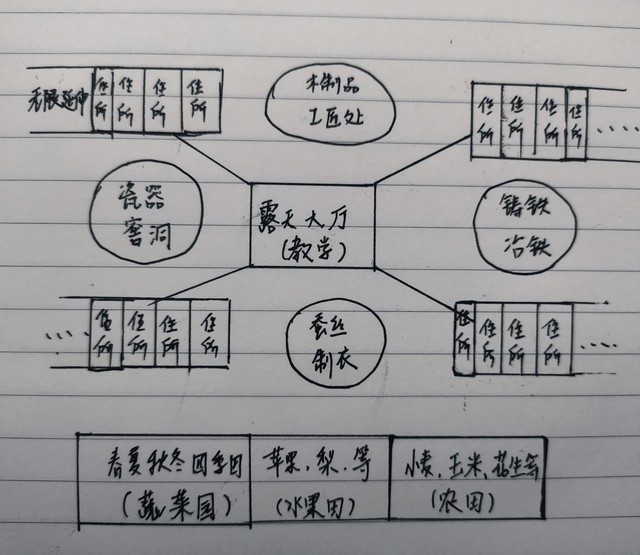 无限延伸
住所
住所
住所
住所
木制品
工匠处
住所
住所
住所
住所
瓷器
窑洞
露天大厅
(教学)
铸铁
冶铁
住所
住所
住所
住所
蚕丝
制衣
住所
住所
住所
住所
春夏秋冬四季田
(蔬菜园)
苹果、梨、等
(水果田)
小麦、玉米、花生等
(农田)